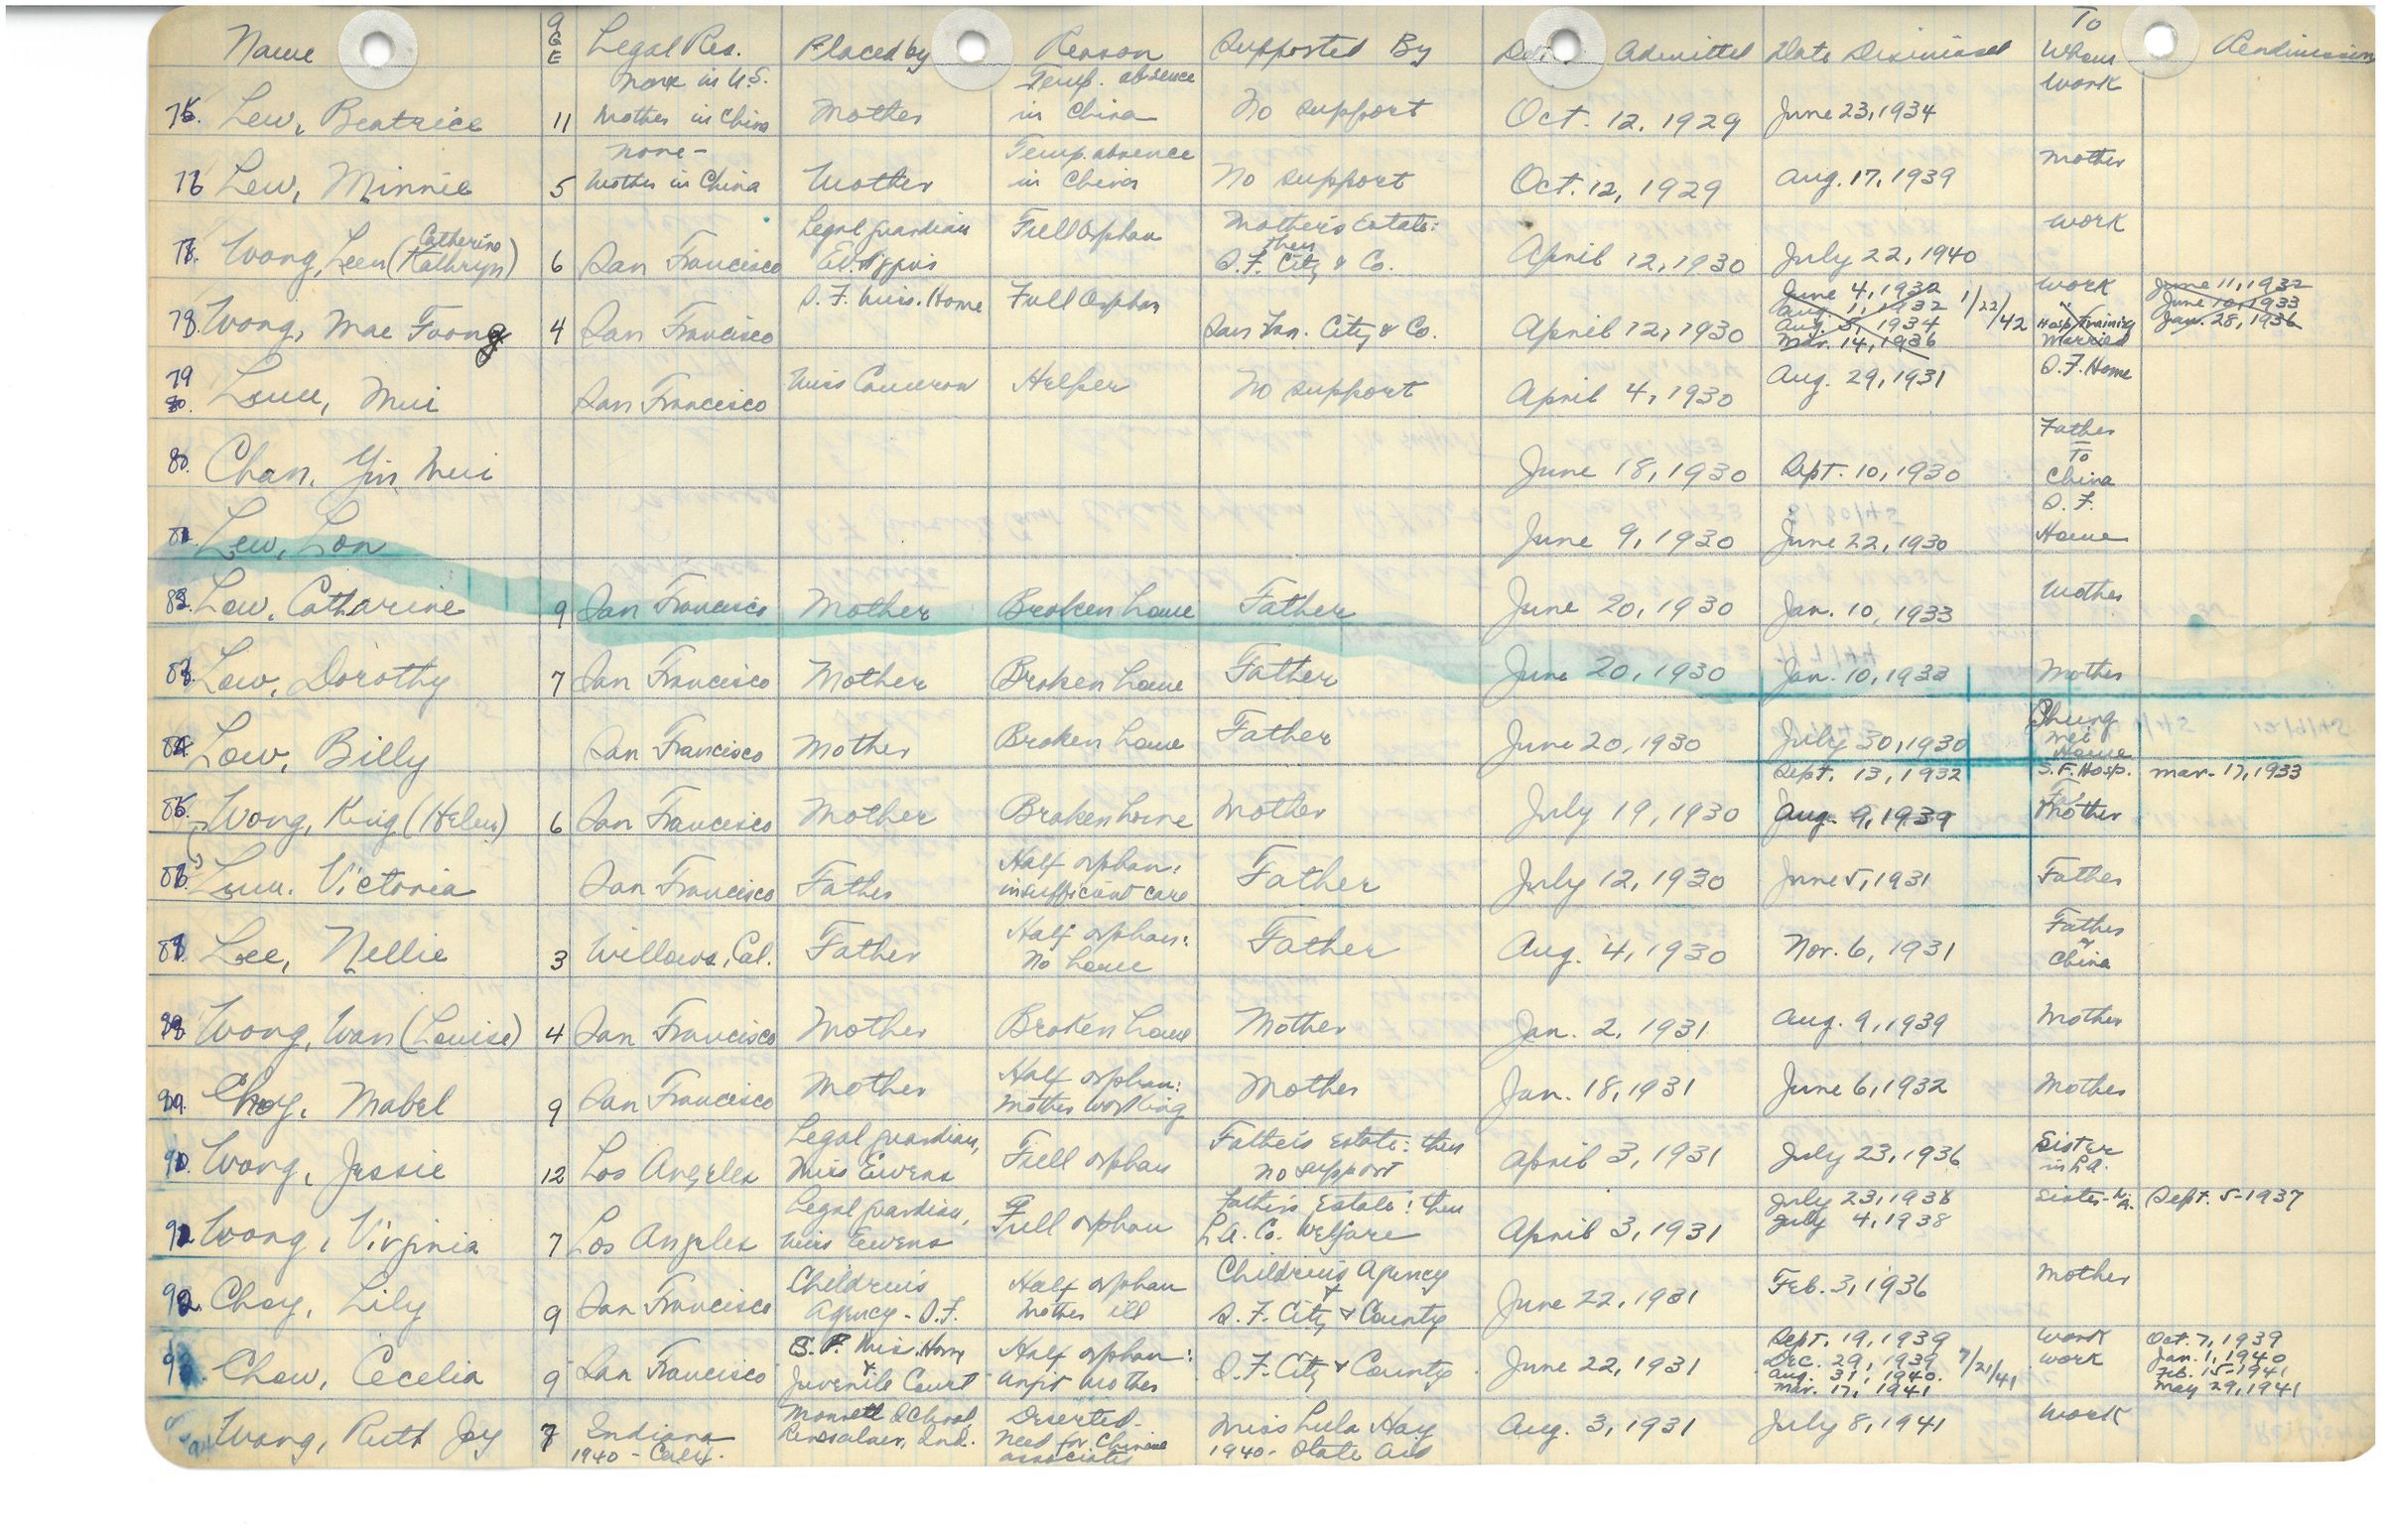 Name AGE Legal Res. Placed by Reason Supported By Date Admitted Date Dismissed To Whom Readmission
75. Lew, Beatrice 11 None in U.S. Mother in China Mother Temp. absence in China No support Oct. 12, 1929 June 23, 1934 Work
76 Lew, Minnie 5 none - Mother in China Mother Temp. absence in China No support Oct. 12, 1929 Aug. 17, 1939 Mother
Wong, Leen (Catherine Kathryn) 6 San Francisco Legal guardian Full Orphan Mother's Estate: then S.F. City & Co. April 12, 1930 July 22, 1940 Work
78. Wong, Mae Foong 4 San Francisco S.F. Miss. Home Full Orphan San Fran. City & Co. April 12, 1930 June 4, 1932 Aug. 1, 1932 Aug. 5, 1934 Mar. 14, 1936 1/22/42 Work " Hosp. Training Married June 11, 1932 June 10, 1933 Jan. 28, 1936
79 80. Mui San Francisco Miss Cameron Helper No support April 4, 1930 Aug. 29, 1931 S.F. Home
80. Chan, Yin Mui June 18, 1930 Sept. 10, 1930 Father To China
81. Lew, Lon June 9, 1930 June 22, 1930 S.F. Home
82. Low, Catharine 9 San Francisco Mother Broken home Father June 20, 1930 Jan. 10, 1933 Mother
83. Low, Dorothy 7 San Francisco Mother Broken home Father June 20, 1930 Jan. 10, 1933 Mother
84. Low, Billy San Francisco Mother Broken home Father June 20, 1930 July 30, 1930 Chung Mei Home
85. Wong, King (Helen) 6 San Francisco Mother Broken home Mother July 19, 1930 Sept. 13, 1932 Aug. 9, 1939 S.F. Hosp. Mother Mar. 17, 1933
86. Lum, Victoria San Francisco Father Half orphan: insufficient care Father July 12, 1930 June 5, 1931 Father
87. Lee, Nellie 3 Willows, Cal. Father Half orphan: No home Father Aug. 4, 1930 Nov. 6, 1931 Father China
88. Wong, Wan (Louise) 4 San Francisco Mother Broken home Mother Jan. 2, 1931 Aug. 9, 1939 Mother
89. Choy, Mabel 9 San Francisco Mother Half orphan: Mother working Mother Jan. 18, 1931 June 6, 1932 Mother
90. Wong, Jessie 12 Los Angeles Legal guardian, Miss Ewens Full orphan Father's Estate: then no support April 3, 1931 July 23, 1936 Sister in L.A.
91. Wong, Virginia 7 Los Angeles Legal guardian, Miss Ewens Full orphan Father's Estate: then L.A. Co. Welfare April 3, 1931 July 23, 1938 July 4, 1938 Sister - L.A. Sept. 5-1937
92. Choy, Lily 9 San Francisco Children's Agency - S.F. Half orphan Mother ill Children's Agency & S.F. City & County June 22, 1931 Feb. 3, 1936 Mother
93. Chow, Cecelia 9 San Francisco S.F. Mis. Home & Juvenile Court Half orphan: unfit mother S.F. City & County June 22, 1931 Sept. 19, 1939 Dec. 29, 1939 Aug. 31, 1940. Mar. 17, 1941 7/21/41 Work Work Oct. 7, 1939 Jan. 1, 1940 Feb. 15-1941 May 29, 1941
Wong, Ruth Joy 7 Indiana 1940 - Calif. Monnett School, Rensselaer, Ind. Deserted - Need for Chinese associates Miss Lula Hay 1940 - State Aid Aug. 3, 1931 July 8, 1941 Work